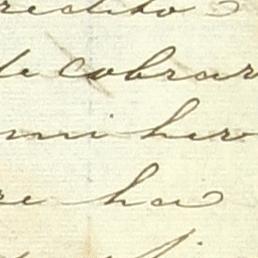 redito
de cobrar
mi her
re ha